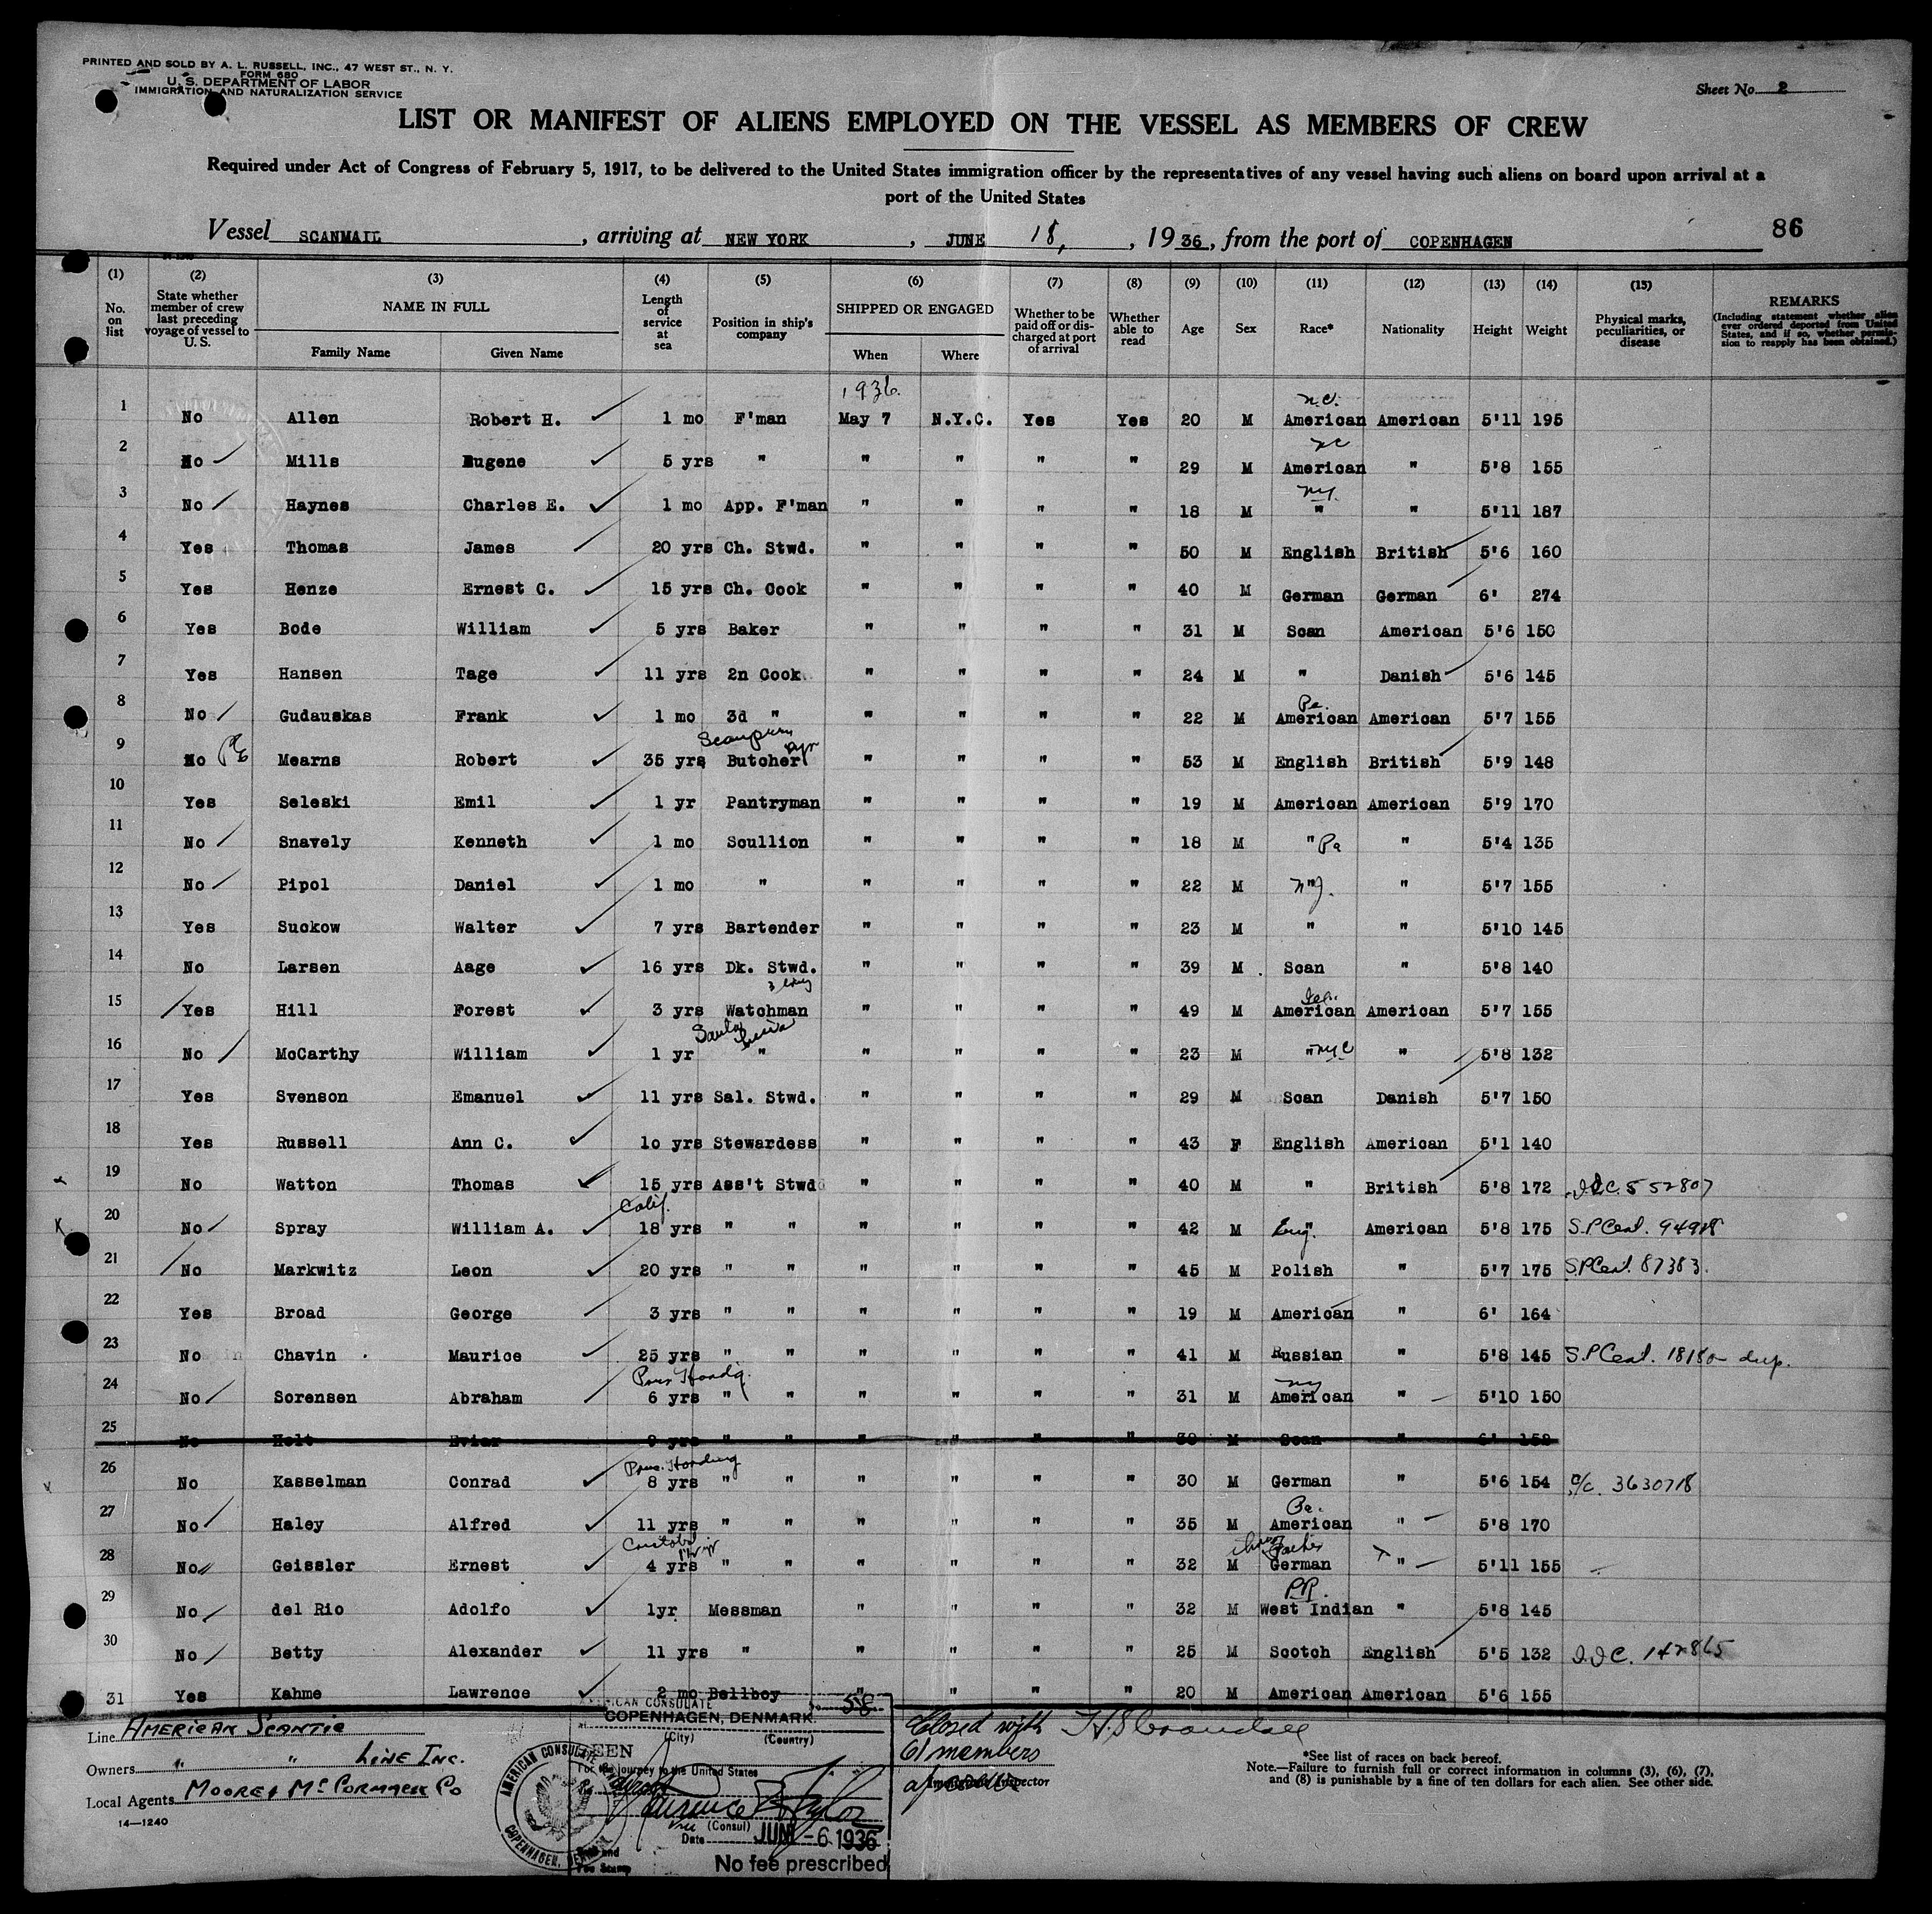 PRINTED AND SOLD BY A. L. RUSSELL, INC., 47 WEST ST., N. Y.
FORM 680
U. S. DEPARTMENT OF LABOR
IMMIGRATION AND NATURALIZATION SERVICE
Sheet No. 2
LIST OR MANIFEST OF ALIENS EMPLOYED ON THE VESSEL AS MEMBERS OF CREW
Required under Act of Congress of February 5, 1917, to be delivered to the United States immigration officer by the representatives of any vessel having such aliens on board upon arrival at a
port of the United States
Vessel SCANMAIL, arriving at NEW YORK, JUNE 18, 1936, from the port of COPENHAGEN 86
(1) (2) (3) (4) (5) (6) (7) (8) (9) (10) (11) (12) (13) (14) (15)
No. on list State whether member of crew last preceding voyage of vessel to U. S. NAME IN FULL Family Name Given Name Length of service at sea Position in ship's company SHIPPED OR ENGAGED When Where Whether to be paid off or discharged at port of arrival Whether able to read Age Sex Race* Nationality Height Weight Physical marks, peculiarities, or disease REMARKS (Including statement whether alien ever ordered deported from United States, and if so, whether permission to reapply has been obtained.)
1936. N.C.
1 No Allen Robert H. 1 mo F'man May 7 N.Y.C. Yes Yes 20 M American American 5'11 195
NC
2 No Mills Eugene 5 yrs " " " " " 29 M American " 5'8 155
NY.
3 No Haynes Charles E. 1 mo App. F'man " " " " 18 M " " 5'11 187
4 Yes Thomas James 20 yrs Ch. Stwd. " " " " 50 M English British 5'6 160
5 Yes Henze Ernest C. 15 yrs Ch. Cook " " " " 40 M German German 6' 274
6 Yes Bode William 5 yrs Baker " " " " 31 M Scan American 5'6 150
7 Yes Hansen Tage 11 yrs 2n Cook " " " " 24 M " Danish 5'6 145
Pa.
8 No Gudauskas Frank 1 mo 3d " " " " " 22 M American American 5'7 155
9 No Mearns Robert 35 yrs Butcher " " " " 53 M English British 5'9 148
10 Yes Seleski Emil 1 yr Pantryman " " " " 19 M American American 5'9 170
11 No Snavely Kenneth 1 mo Scullion " " " " 18 M " Pa " 5'4 135
12 No Pipol Daniel 1 mo " " " " " 22 M " N.J. " 5'7 155
13 Yes Suckow Walter 7 yrs Bartender " " " " 23 M " " 5'10 145
14 No Larsen Aage 16 yrs Dk. Stwd. " " " " 39 M Scan " 5'8 140
15 Yes Hill Forest 3 yrs Watchman " " " " 49 M American American 5'7 155
16 No McCarthy William 1 yr " " " " " 23 M " NYC " 5'8 132
17 Yes Svenson Emanuel 11 yrs Sal. Stwd. " " " " 29 M Scan Danish 5'7 150
18 Yes Russell Ann C. 10 yrs Stewardess " " " " 43 F English American 5'1 140
19 No Watton Thomas 15 yrs Ass't Stwd " " " " 40 M " British 5'8 172
Calif.
20 No Spray William A. 18 yrs " " " " " " 42 M Eng. " American 5'8 175 S.P.Cert.
21 No Markwitz Leon 20 yrs " " " " " " 45 M Polish " 5'7 175 S.P.Cert. 87383.
22 Yes Broad George 3 yrs " " " " " " 19 M American " 6' 164
23 No Chavin Maurice 25 yrs " " " " " " 41 M Russian " 5'8 145 S.P.Cert. dup.
Pres. Harding NY
24 No Sorensen Abraham 6 yrs " " " " " " 31 M American " 5'10 150
25 No Holt 9 yrs " " " " " " 30 M Scan " 6' 152
Pres. Harding
26 No Kasselman Conrad 8 yrs " " " " " " 30 M German " 5'6 154 c/c. 3630718
Pa.
27 No Haley Alfred 11 yrs " " " " " " 35 M American " 5'8 170
28 No Geissler Ernest 4 yrs " " " " " " 32 M German " 5'11 155
P.R.
29 No del Rio Adolfo 1yr Messman " " " " 32 M West Indian " 5'8 145
30 No Betty Alexander 11 yrs " " " " " 25 M Scotch English 5'5 132
31 Yes Kahme Lawrence 2 mo Bellboy " " " " 20 M American American 5'6 155
Line AMERICAN SCANTIC
Owners " " LINE INC.
Local Agents MOORE & McCORMACK CO
14—1240
AMERICAN CONSULATE No. 58
COPENHAGEN, DENMARK
(City) (Country)
SEEN
For the journey to the United States
(Consul)
Date JUN -6 1936
No fee prescribed
AMERICAN CONSULATE
COPENHAGEN, DENMARK
Closed with
61 members
of crew
Immigrant Inspector
*See list of races on back hereof.
Note.—Failure to furnish full or correct information in columns (3), (6), (7),
and (8) is punishable by a fine of ten dollars for each alien. See other side.